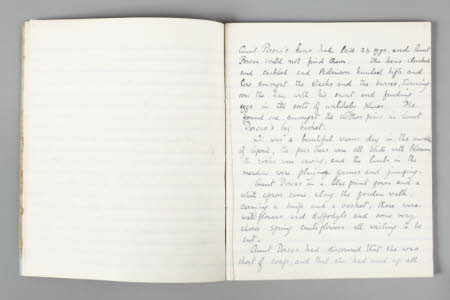 Aunt Dorcas's hens had laid 24 eggs, and Aunt
Dorcas could not find them. The hens clucked
and cackled and Robinson hunted high and
low amongst the stacks and the barns, turning
over the hay with his snout and finding
eggs in all sorts of unlikely places. He
found one amongst the clothes pins in Aunt
Dorcas's peg basket.
It was a beautiful warm day in the middle
of April, the pear trees were all white with blossom
the rooks were cawing, and the lambs in the
meadow were playing games and jumping.
Aunt Dorcas in a blue print gown and a
white apron came along the garden walk,
carrying a knife and a basket, there were
wallflowers and daffodyls and some very
choice spring cauliflowers all waiting to be
cut.
Aunt Dorcas had discovered that she was
short of soap, and that she had used up all